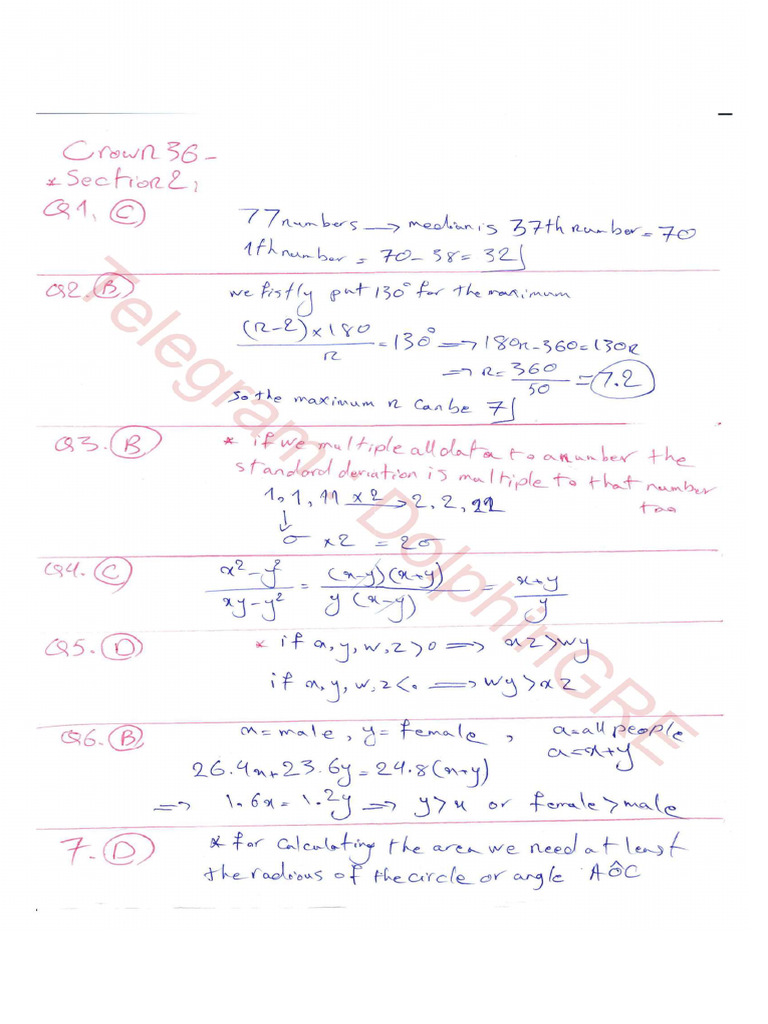 Crown 36-
* Section 2,
Q1. C 77 numbers → median is 37th number = 70
1th number = 70 - 38 = 32
Q2. B we fistly put 130° for the maximum
(n-2)×180 / n = 130° ⟹ 180n-360=130n
⟹ n = 360 / 50 = 7.2
so the maximum n can be 7
Q3. B * if we multiple all data to a number the
standard deviation is multiple to that number
too
1, 1, 11 ×2 → 2, 2, 22
↓
σ ×2 = 2σ
Q4. C x²-y² / xy-y² = (x-y)(x+y) / y(x-y) = x+y / y
Q5. D * if x, y, w, z >0 ⟹ xz>wy
if x, y, w, z <0 ⟹ wy>xz
Q6. B x=male, y=female, a=all people
a=x+y
26.4x+23.6y=24.8(x+y)
⟹ 1.6x=1.2y ⟹ y>x or female>male
7. D * for calculating the area we need at least
the radious of the circle or angle AÔC
Telegram: DolphinGRE